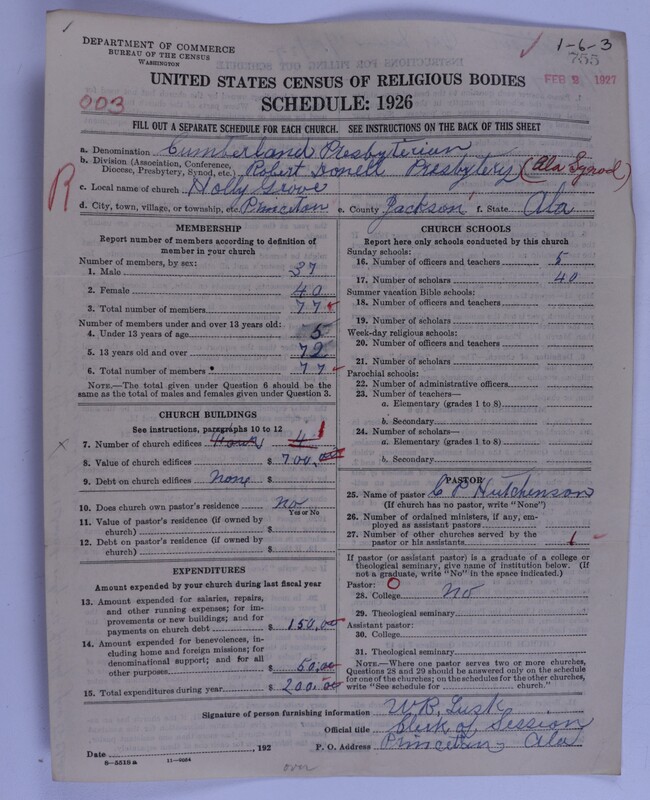 DEPARTMENT OF COMMERCE
BUREAU OF THE CENSUS
WASHINGTON
1-6-3
755
FEB 2 1927
UNITED STATES CENSUS OF RELIGIOUS BODIES
003
SCHEDULE: 1926
FILL OUT A SEPARATE SCHEDULE FOR EACH CHURCH. SEE INSTRUCTIONS ON THE BACK OF THIS SHEET
a. Denomination Cumberland Presbyterian
b. Division (Association, Conference, Diocese, Presbytery, Synod, etc.) Robert Donell Presbytery (Ala Synod)
R
c. Local name of church Holly Grove
d. City, town, village, or township, etc. Princeton e. County Jackson f. State Ala
MEMBERSHIP
Report number of members according to definition of
member in your church
Number of members, by sex:
1. Male 37
2. Female 40
3. Total number of members 77
Number of members under and over 13 years old:
4. Under 13 years of age 5
5. 13 years old and over 72
6. Total number of members 77
NOTE.—The total given under Question 6 should be
same as the total of males and females given under Question 3.
CHURCH BUILDINGS
See instructions, paragraphs 10 to 12
7. Number of church edifices 1
8. Value of church edifices $ 700.00
9. Debt on church edifices none $
10. Does church own pastor's residence No
Yes or No
11. Value of pastor's residence (if owned by
church) $
12. Debt on pastor's residence (if owned by
church) $
EXPENDITURES
Amount expended by your church during last fiscal year
13. Amount expended for salaries, repairs,
and other running expenses; for im-
provements or new buildings; and for
payments on church debt $ 150.00
14. Amount expended for benevolences, in-
cluding home and foreign missions; for
denominational support; and for all
other purposes $ 50.00
15. Total expenditures during year $ 200.00
CHURCH SCHOOLS
Report here only schools conducted by this church
Sunday schools:
16. Number of officers and teachers 5
17. Number of scholars 40
Summer vacation Bible schools:
18. Number of officers and teachers
19. Number of scholars
Week-day religious schools:
20. Number of officers and teachers
21. Number of scholars
Parochial schools:
22. Number of administrative officers
23. Number of teachers—
a. Elementary (grades 1 to 8)
b. Secondary
24. Number of scholars—
a. Elementary (grades 1 to 8)
b. Secondary
PASTOR
25. Name of pastor C P Hutchinson
(If church has no pastor, write "None")
26. Number of ordained ministers, if any, em-
ployed as assistant pastors
27. Number of other churches served by the
pastor or his assistants 1
If pastor (or assistant pastor) is a graduate of a college or
theological seminary, give name of institution below. (If
not a graduate, write "No" in the space indicated.)
Pastor: 0
28. College No
29. Theological seminary
Assistant pastor:
30. College
31. Theological seminary
NOTE.—Where one pastor serves two or more churches,
Questions 28 and 29 should be answered only on the schedule
for one of the churches; on the schedules for the other churches,
write "See schedule for church."
Signature of person furnishing information W R Lusk
Official title Clerk of Session
Date , 192 P. O. Address Princeton Ala
8-5518 a 11-9064
over